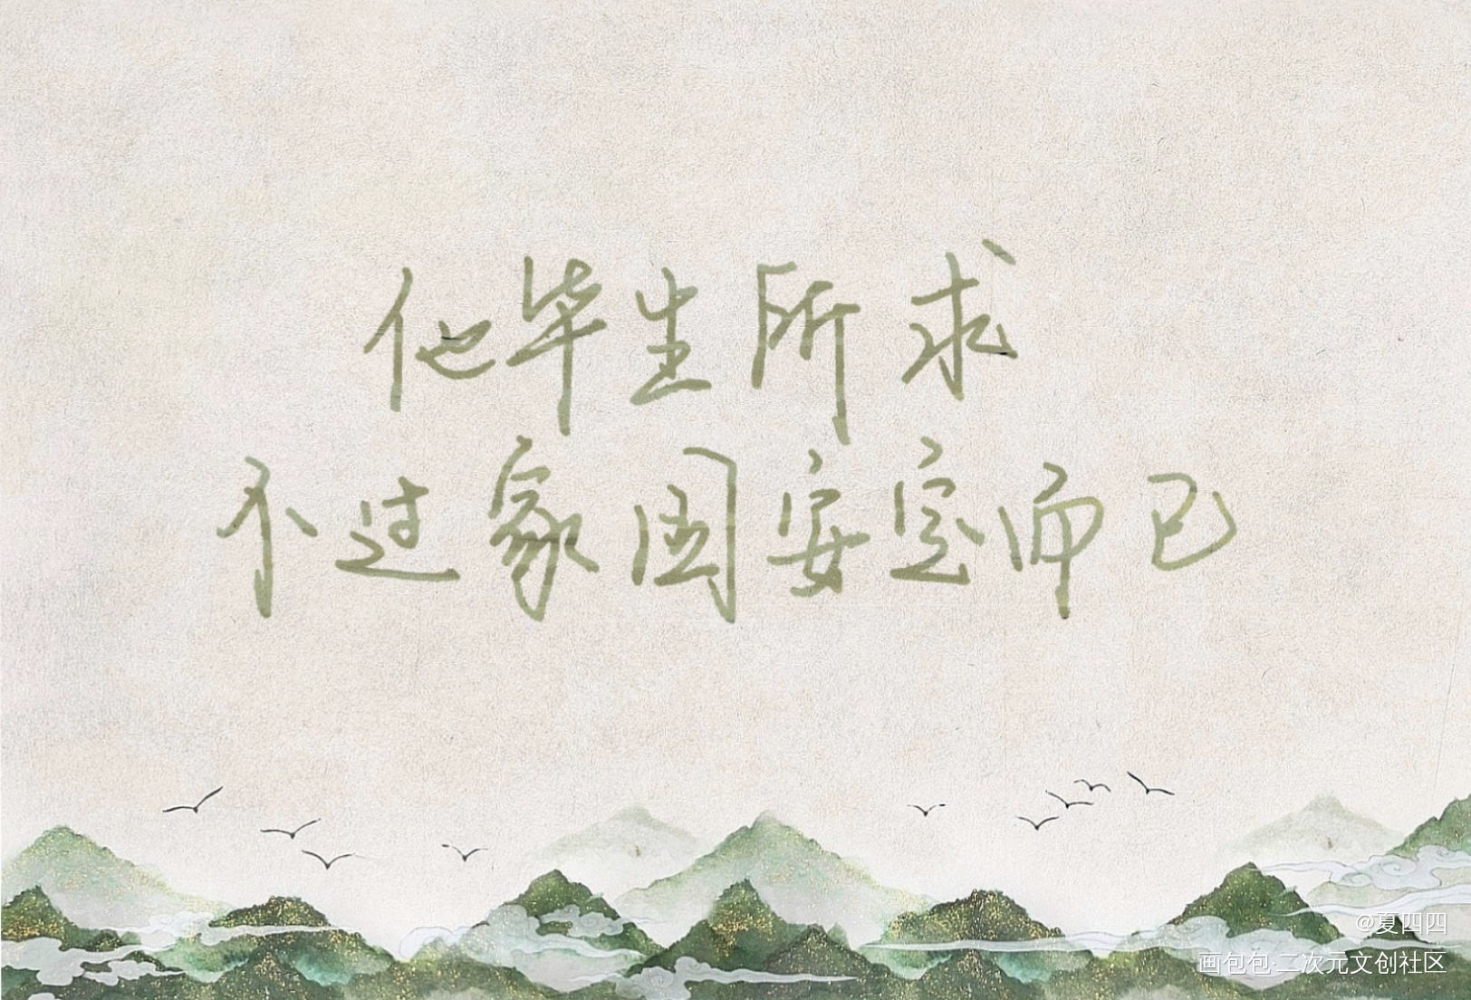 他毕生所求
不过家国安定而已
@夏四四
画包包·二次元文创社区